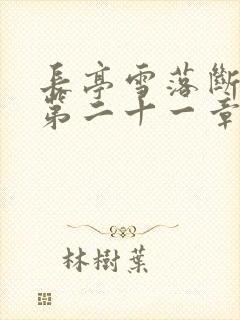 長亭雪落斷
第二十一章
林樹葉